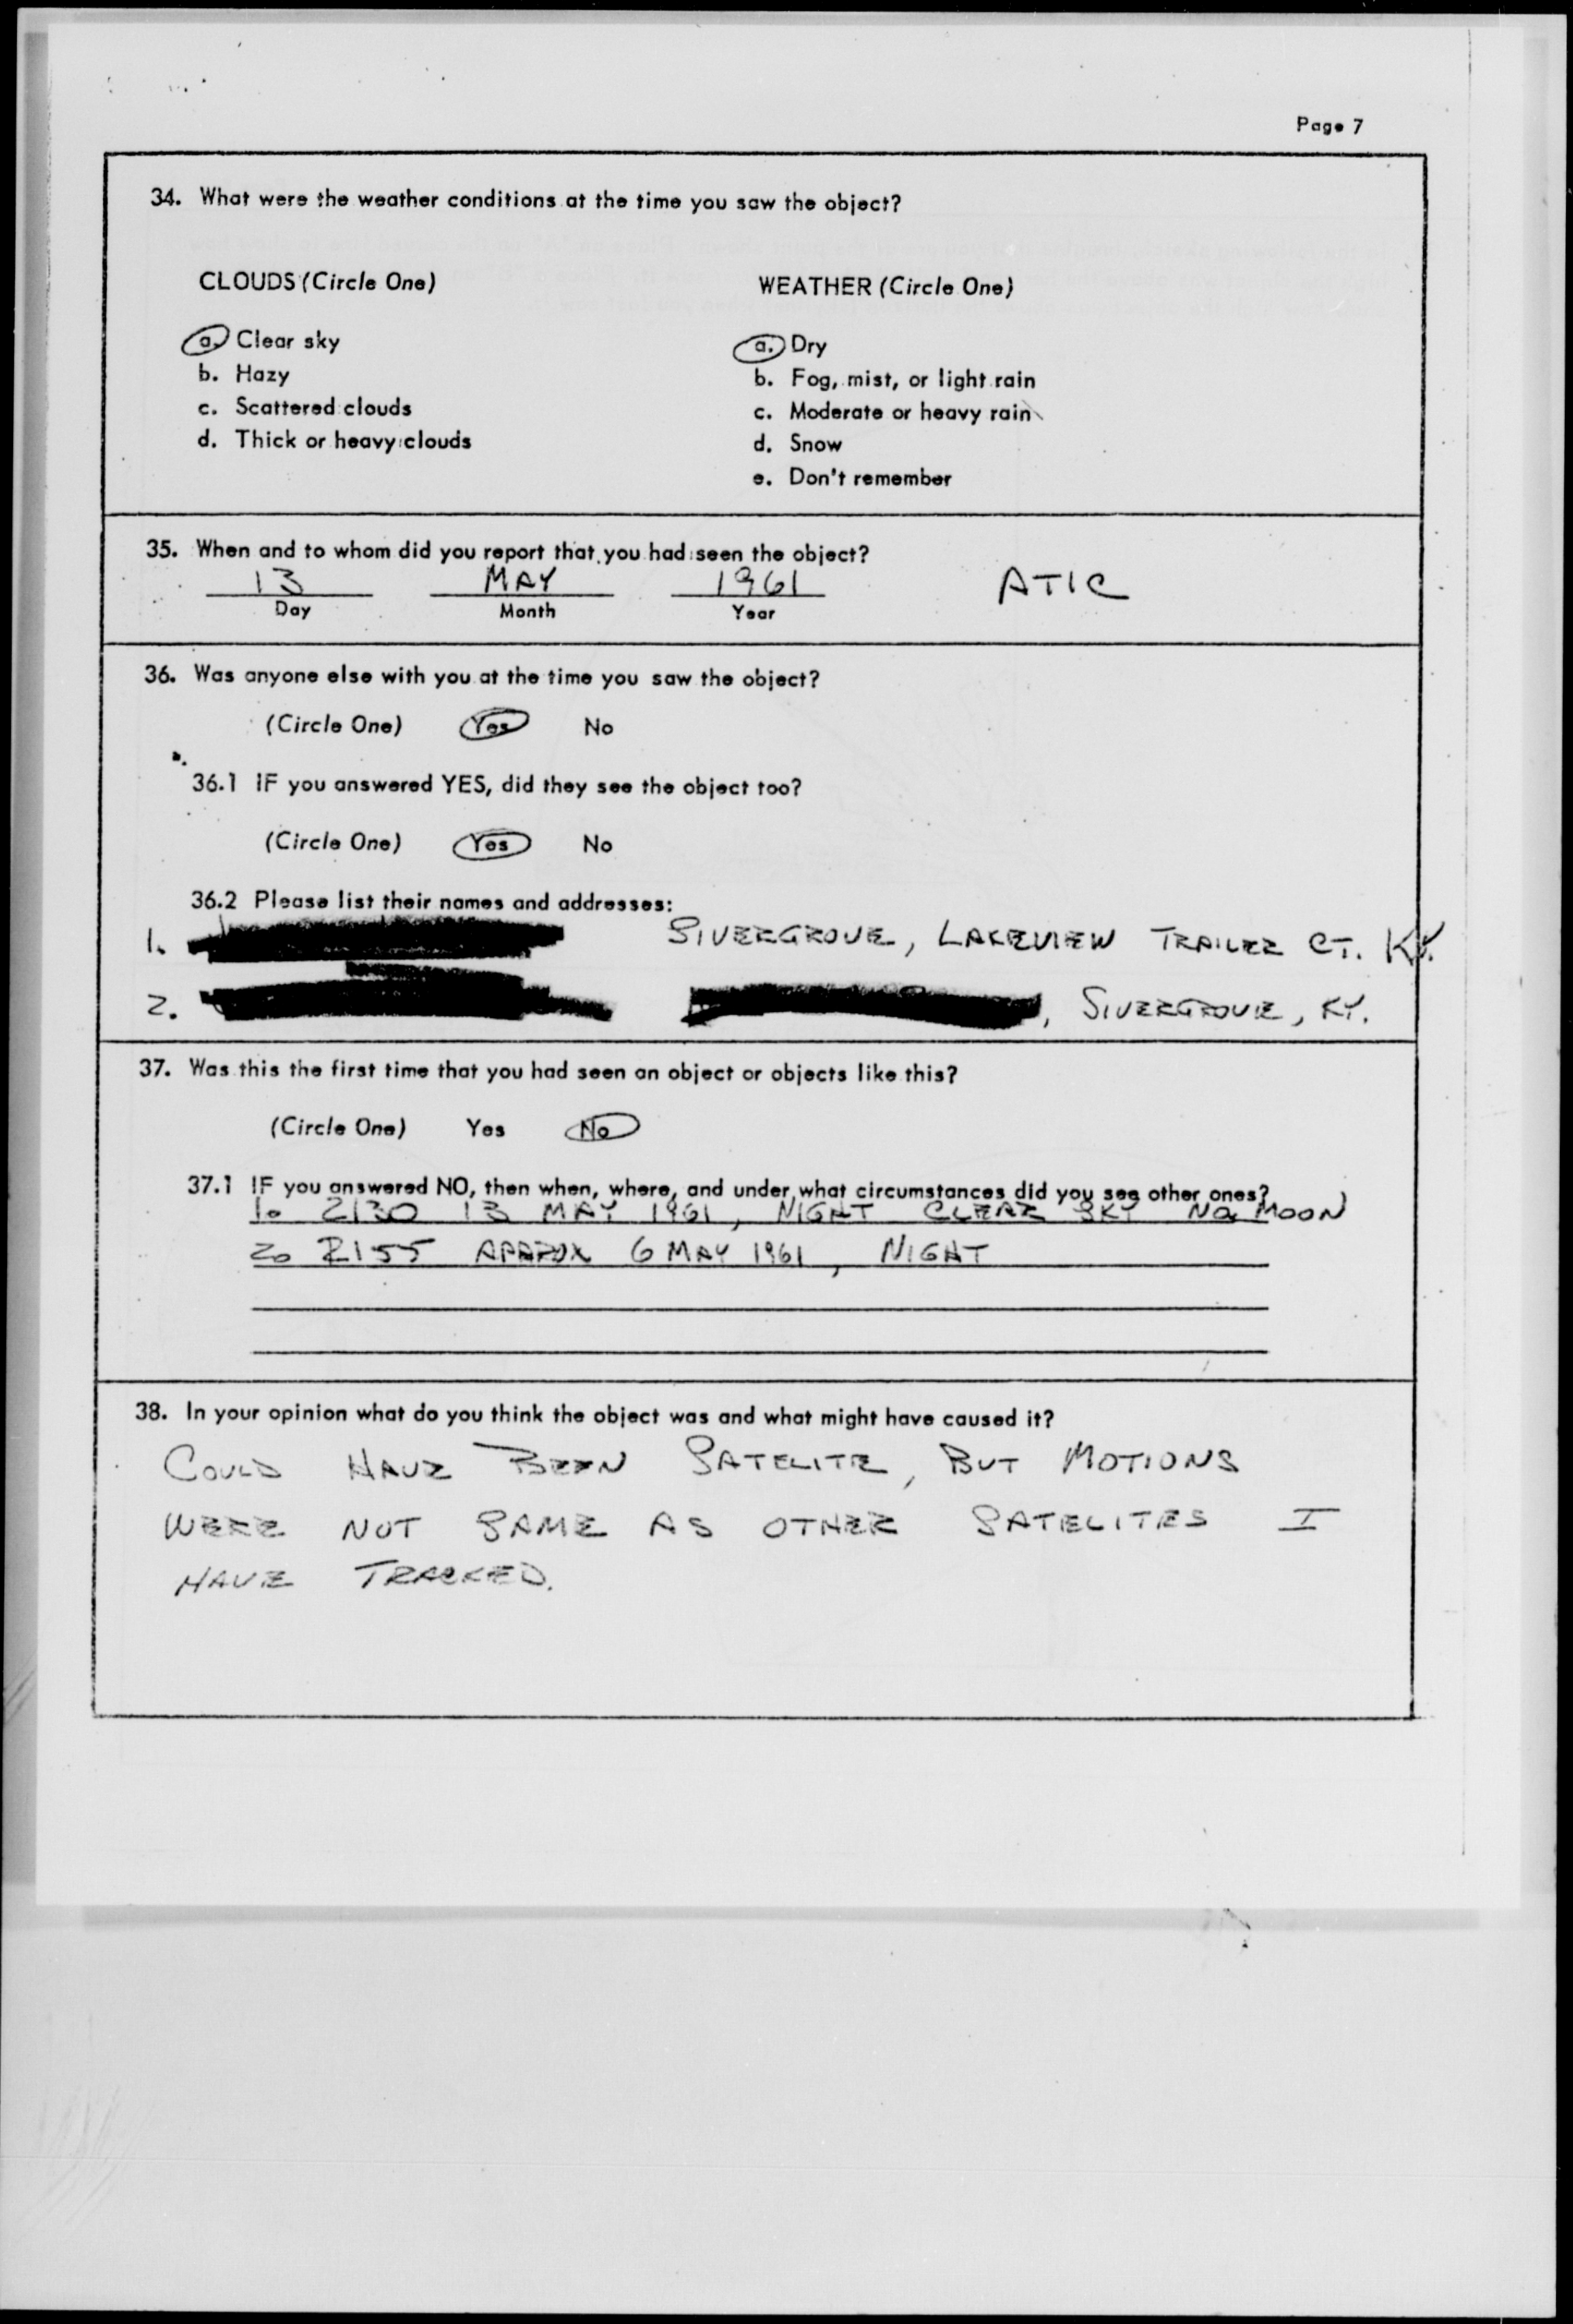 Page 7
34. What were the weather conditions at the time you saw the object?
CLOUDS (Circle One) WEATHER (Circle One)
a. Clear sky a. Dry
b. Hazy b. Fog, mist, or light rain
c. Scattered clouds c. Moderate or heavy rain
d. Thick or heavy clouds d. Snow
e. Don't remember
35. When and to whom did you report that you had seen the object?
13 MAY 1961 ATIC
Day Month Year
36. Was anyone else with you at the time you saw the object?
(Circle One) Yes No
36.1 IF you answered YES, did they see the object too?
(Circle One) Yes No
36.2 Please list their names and addresses:
1. SIVERGROVE, LAKEVIEW TRAILER CT. KY.
2. , SIVERGROVE, KY.
37. Was this the first time that you had seen an object or objects like this?
(Circle One) Yes No
37.1 IF you answered NO, then when, where, and under what circumstances did you see other ones?
1. 2130 13 MAY 1961, NIGHT CLEAR SKY NO MOON
2. 2155 APPROX 6 MAY 1961, NIGHT
38. In your opinion what do you think the object was and what might have caused it?
COULD HAVE BEEN SATELITE, BUT MOTIONS
WERE NOT SAME AS OTHER SATELITES I
HAVE TRACKED.